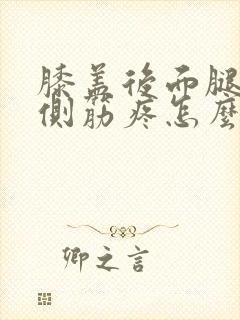 膝盖後面腿
側筋疼怎麼
卿之言